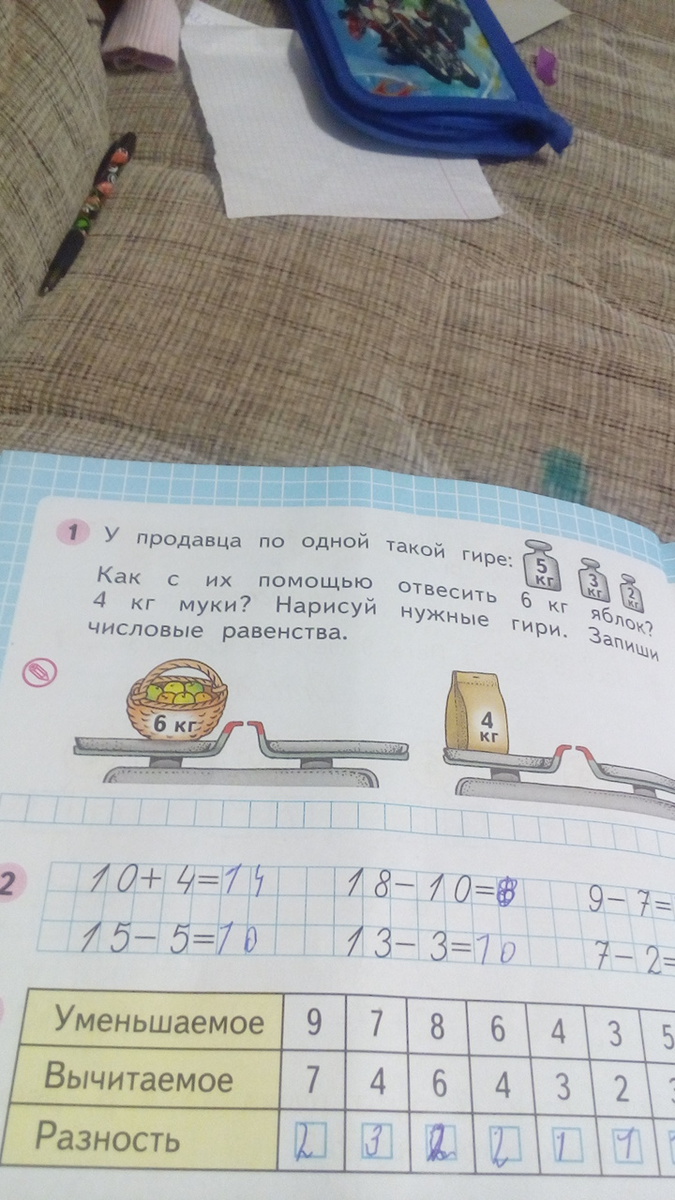 1 У продавца по одной такой гире: 5 кг 3 кг 2 кг
Как с их помощью отвесить 6 кг яблок?
4 кг муки? Нарисуй нужные гири. Запиши
числовые равенства.
6 кг 4 кг
2 10+4=14 18-10=8 9-7=
15-5=10 13-3=10 7-2=
Уменьшаемое 9 7 8 6 4 3 5
Вычитаемое 7 4 6 4 3 2
Разность 2 3 2 2 1 1